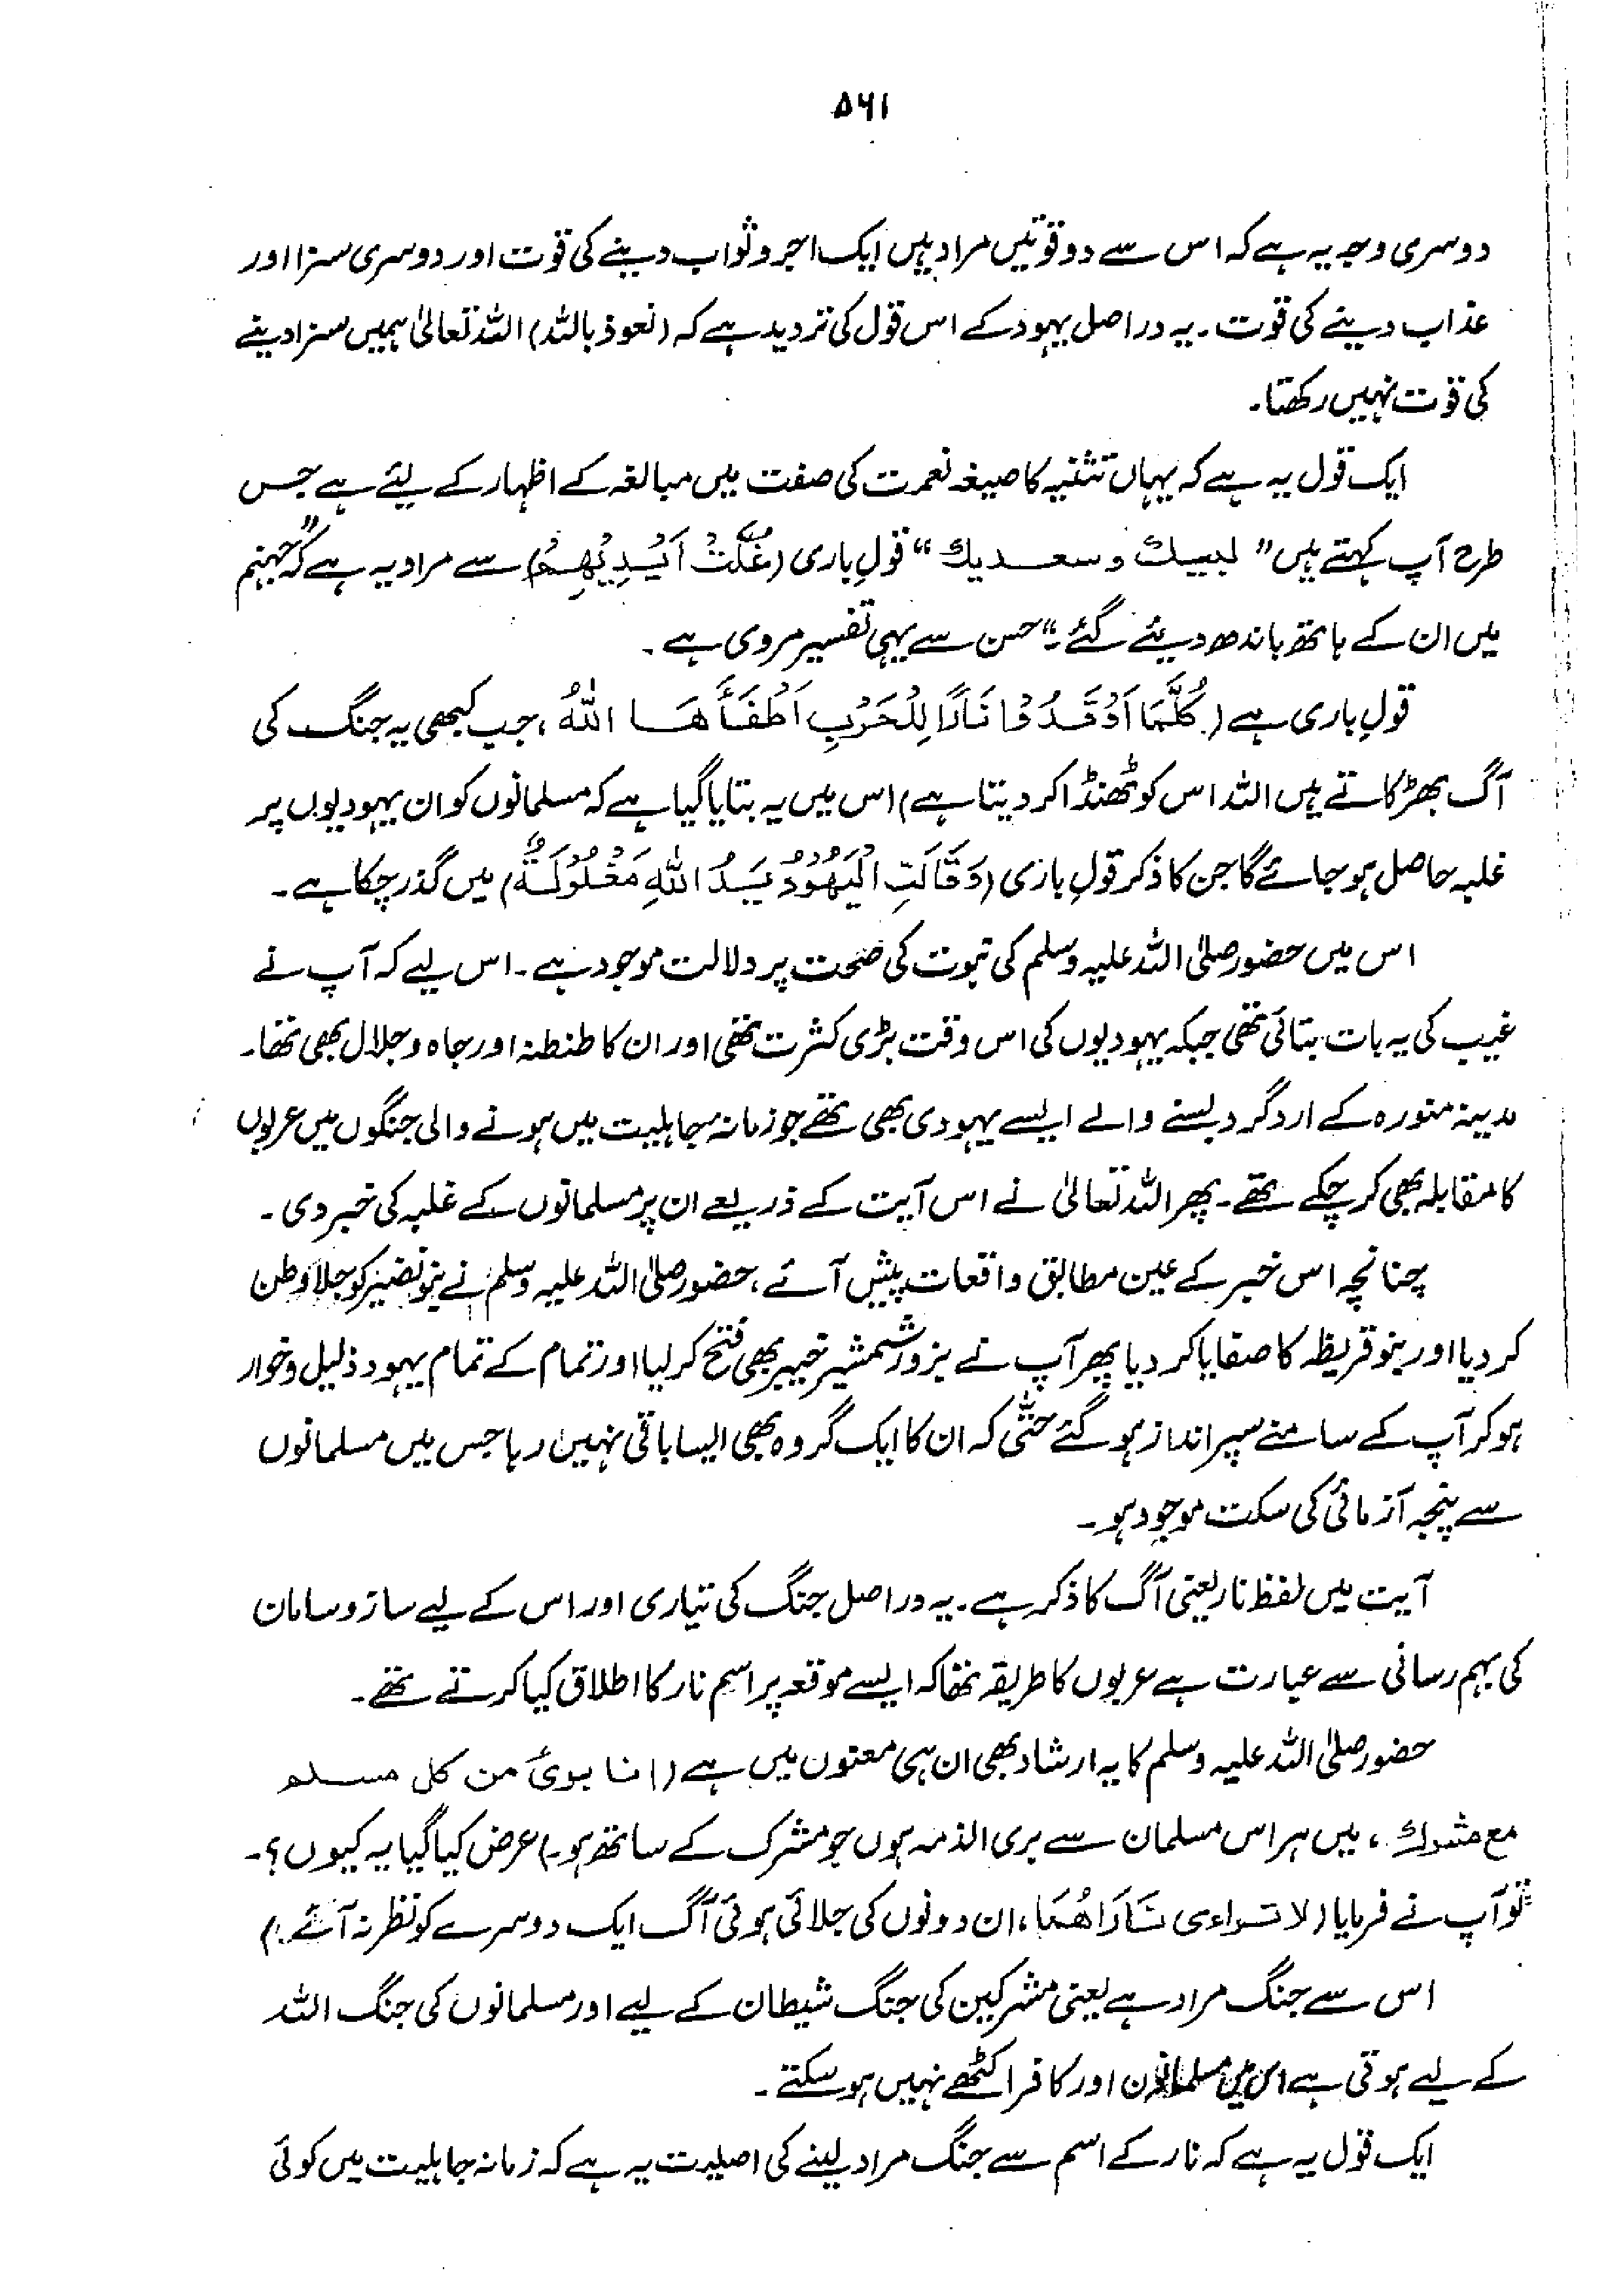 ۵۶۱
دوسری وجہ یہ ہے کہ اس سے دو قوتیں مراد ہیں ایک اجر و ثواب دینے کی قوت اور دوسری سزا اور
عذاب دینے کی قوت۔ یہ دراصل یہود کے اس قول کی تردید ہے کہ (نعوذ باللہ) اللہ تعالیٰ ہمیں سزا دینے
کی قوت نہیں رکھتا۔
ایک قول یہ ہے کہ یہاں تثنیہ کا صیغہ نعمت کی صفت میں مبالغہ کے اظہار کے لیئے ہے جس
طرح آپ کہتے ہیں " لبیك و سعدیك " قولِ باری (غُلَّتْ اَيْدِيْهِمْ) سے مراد یہ ہے کہ "جہنم
میں ان کے ہاتھ باندھ دیئے گئے۔" حسن سے یہی تفسیر مروی ہے۔
قولِ باری ہے (كُلَّمَا اَوْقَدُوْا نَارًا لِلْحَرْبِ اَطْفَأَهَا اللّٰهُ، جب کبھی یہ جنگ کی
آگ بھڑکاتے ہیں اللہ اس کو ٹھنڈا کر دیتا ہے) اس میں یہ بتایا گیا ہے کہ مسلمانوں کو ان یہودیوں پر
غلبہ حاصل ہو جائے گا جن کا ذکر قولِ باری (وَقَالَتِ الْيَهُوْدُ يَدُ اللّٰهِ مَغْلُوْلَةٌ) میں گذر چکا ہے۔
اس میں حضور صلی اللہ علیہ وسلم کی نبوت کی صحت پر دلالت موجود ہے۔ اس لیے کہ آپ نے
غیب کی یہ بات بتائی تھی جبکہ یہودیوں کی اس وقت بڑی کثرت تھی اور ان کا طنطنہ اور جاہ و جلال بھی تھا۔
مدینہ منورہ کے ارد گرد بسنے والے ایسے یہودی بھی تھے جو زمانہ جاہلیت میں ہونے والی جنگوں میں عربوں
کا مقابلہ بھی کر چکے تھے۔ پھر اللہ تعالیٰ نے اس آیت کے ذریعے ان پر مسلمانوں کے غلبہ کی خبر دی۔
چنانچہ اس خبر کے عین مطابق واقعات پیش آئے، حضور صلی اللہ علیہ وسلم نے بنو نضیر کو جلا وطن
کر دیا اور بنو قریظہ کا صفایا کر دیا پھر آپ نے بزور شمشیر خیبر بھی فتح کر لیا اور تمام کے تمام یہود ذلیل و خوار
ہو کر آپ کے سامنے سپر انداز ہو گئے حتّٰی کہ ان کا ایک گروہ بھی ایسا باقی نہیں رہا جس میں مسلمانوں
سے پنجہ آزمائی کی سکت موجود ہو۔
آیت میں لفظ نار یعنی آگ کا ذکر ہے۔ یہ دراصل جنگ کی تیاری اور اس کے لیے ساز و سامان
کی بہم رسانی سے عبارت ہے عربوں کا طریقہ تھا کہ ایسے موقعہ پر اسم نار کا اطلاق کیا کرتے تھے۔
حضور صلی اللہ علیہ وسلم کا یہ ارشاد بھی ان ہی معنوں میں ہے (انا بریٔ من کل مسلم
مع مشرك، میں ہر اس مسلمان سے بری الذمہ ہوں جو مشرک کے ساتھ ہو۔) عرض کیا گیا یہ کیوں؟۔
تو آپ نے فرمایا (لا تراءی نَارَاهُمَا، ان دونوں کی جلائی ہوئی آگ ایک دوسرے کو نظر نہ آئے۔)
اس سے جنگ مراد ہے یعنی مشرکین کی جنگ شیطان کے لیے اور مسلمانوں کی جنگ اللہ
کے لیے ہوتی ہے اس میں مسلمان اور کافر اکٹھے نہیں ہو سکتے۔
ایک قول یہ ہے کہ نار کے اسم سے جنگ مراد لینے کی اصلیت یہ ہے کہ زمانہ جاہلیت میں کوئی